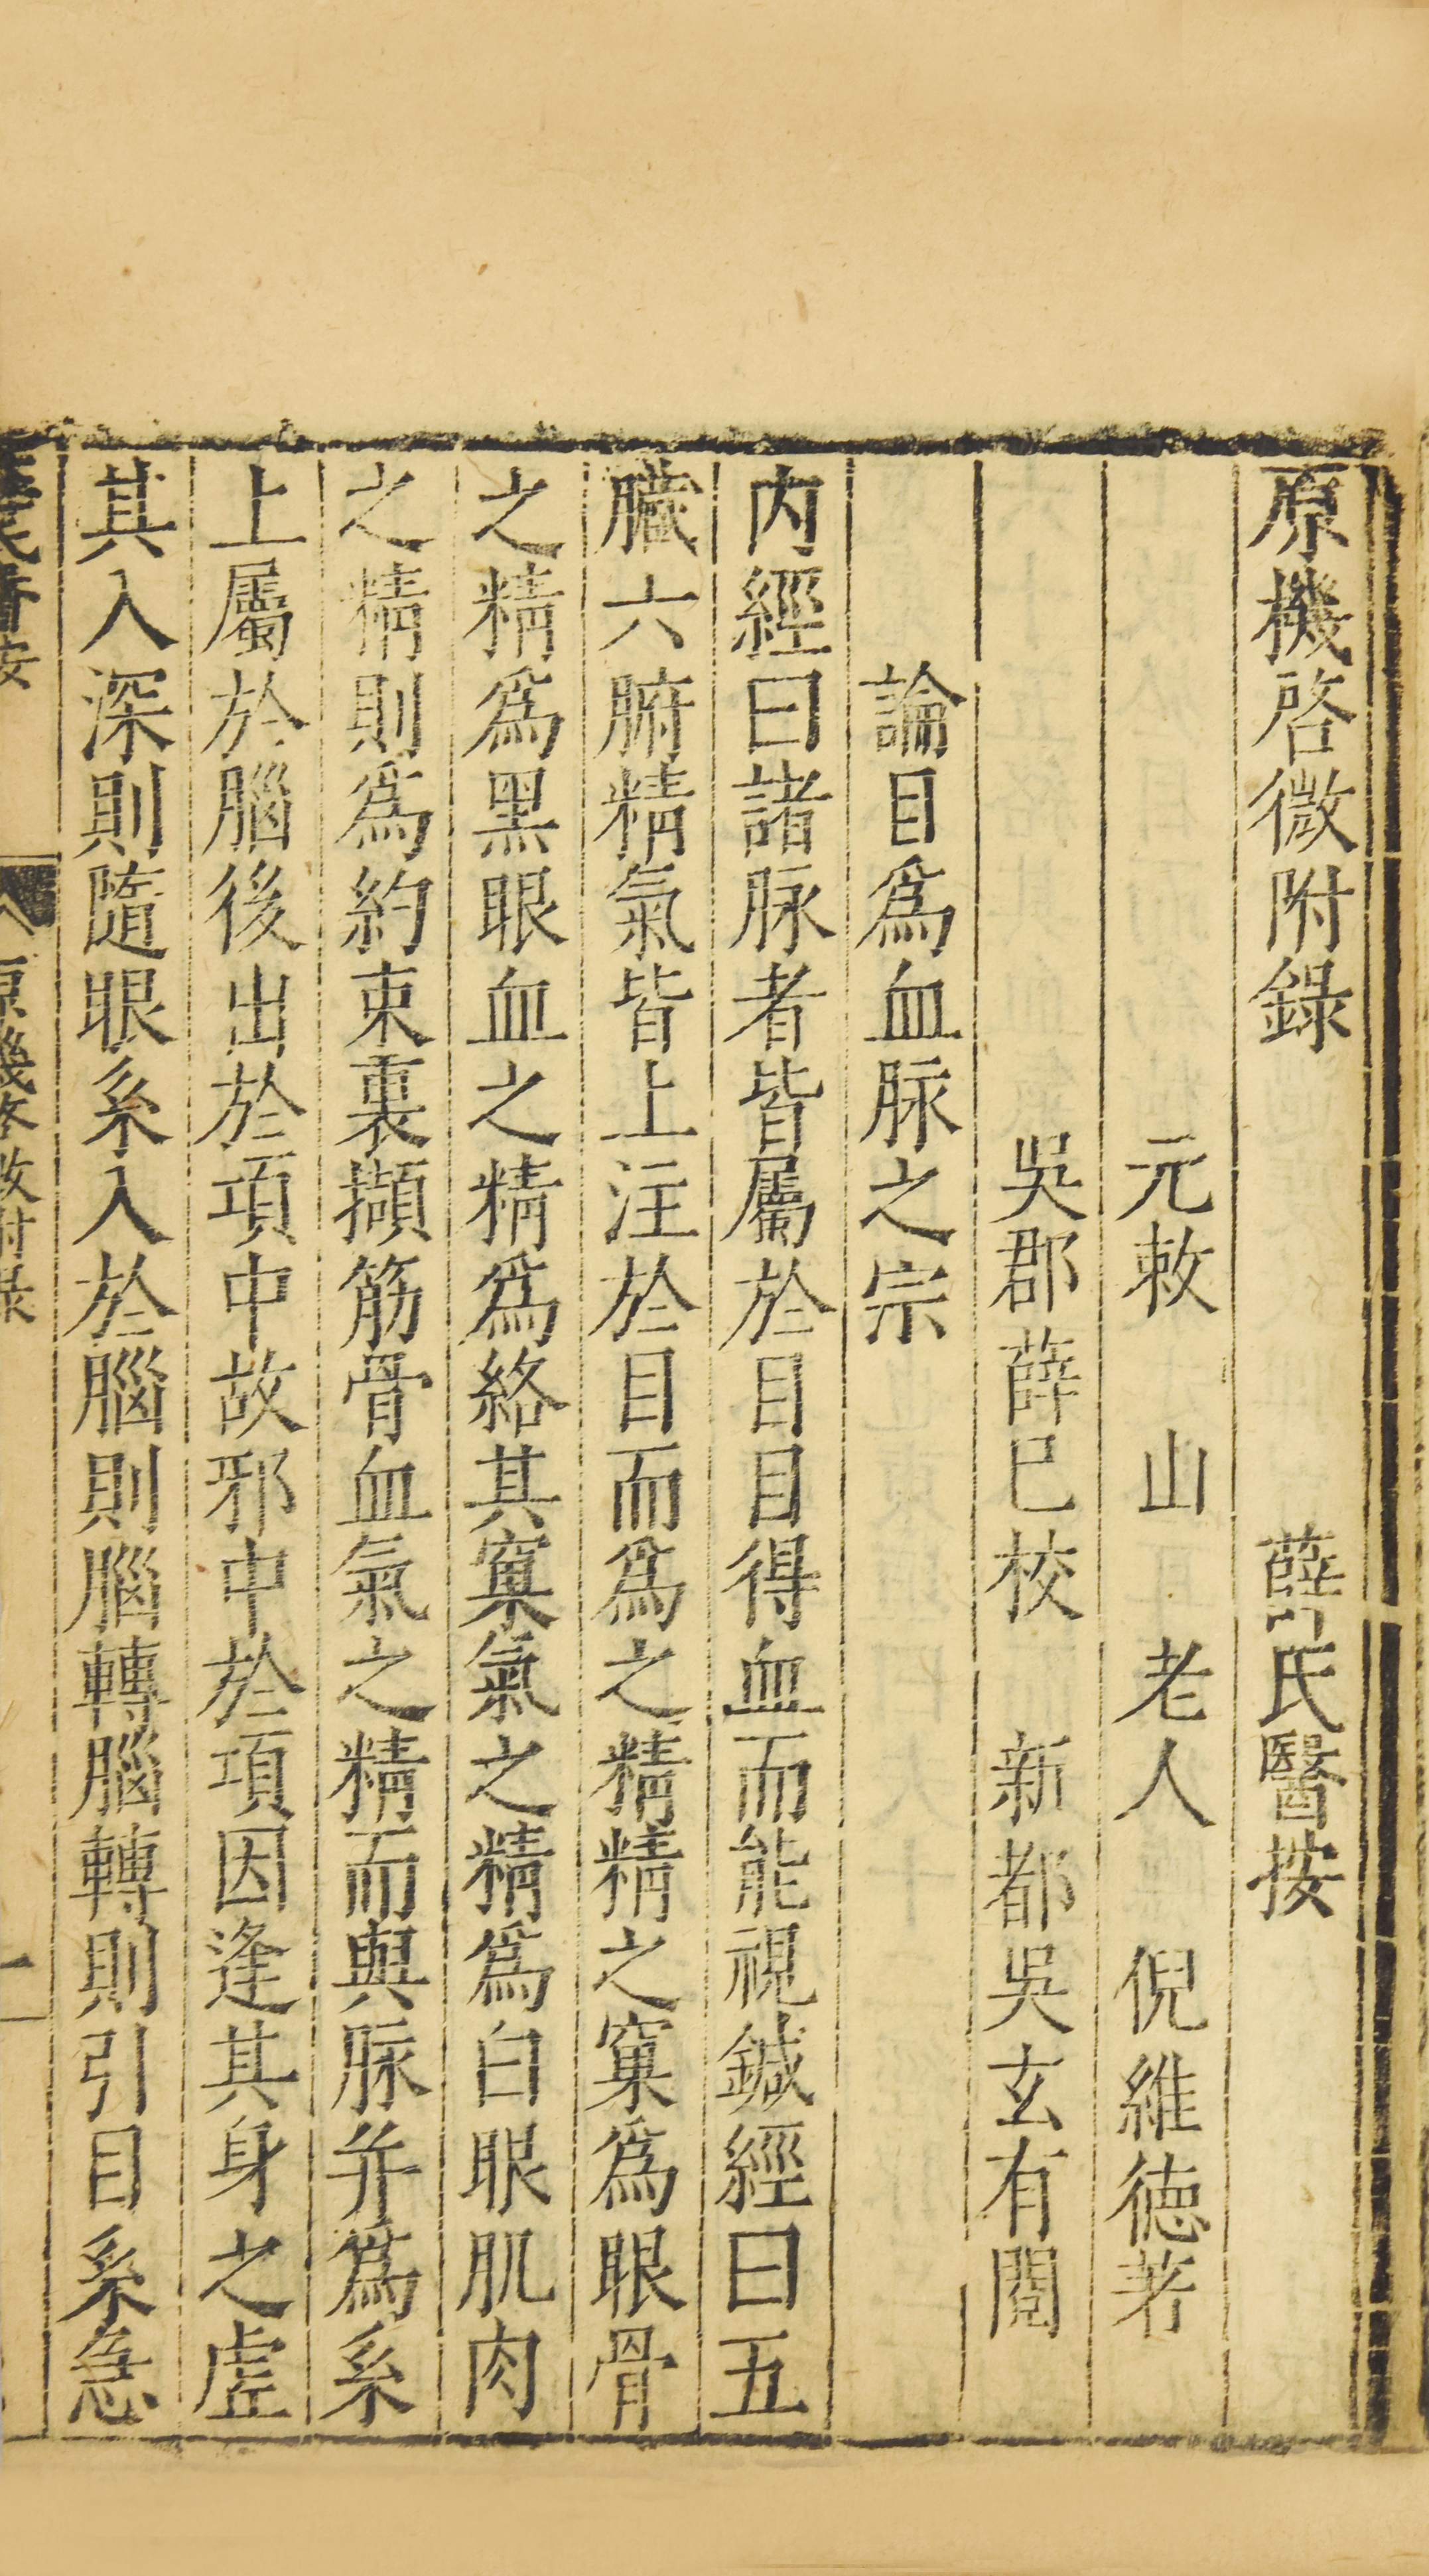 原機啓微附錄 薛氏醫按
元敕 山 老人 倪維德著
吳郡薛已校 新都吳玄有閱
論目爲血脉之宗
内經曰諸脉者皆屬於目目得血而能視鍼經曰五
臓六腑精氣皆上注於目而爲之精精之窠爲眼骨
之精爲黑眼血之精爲絡其窠氣之精爲白眼肌肉
之精則爲約束裏擷筋骨血氣之精而與脉并爲系
上屬於腦後出於項中故邪中於項因逢其身之虛
其入深則隨眼系入於腦則腦轉腦轉則引目系急